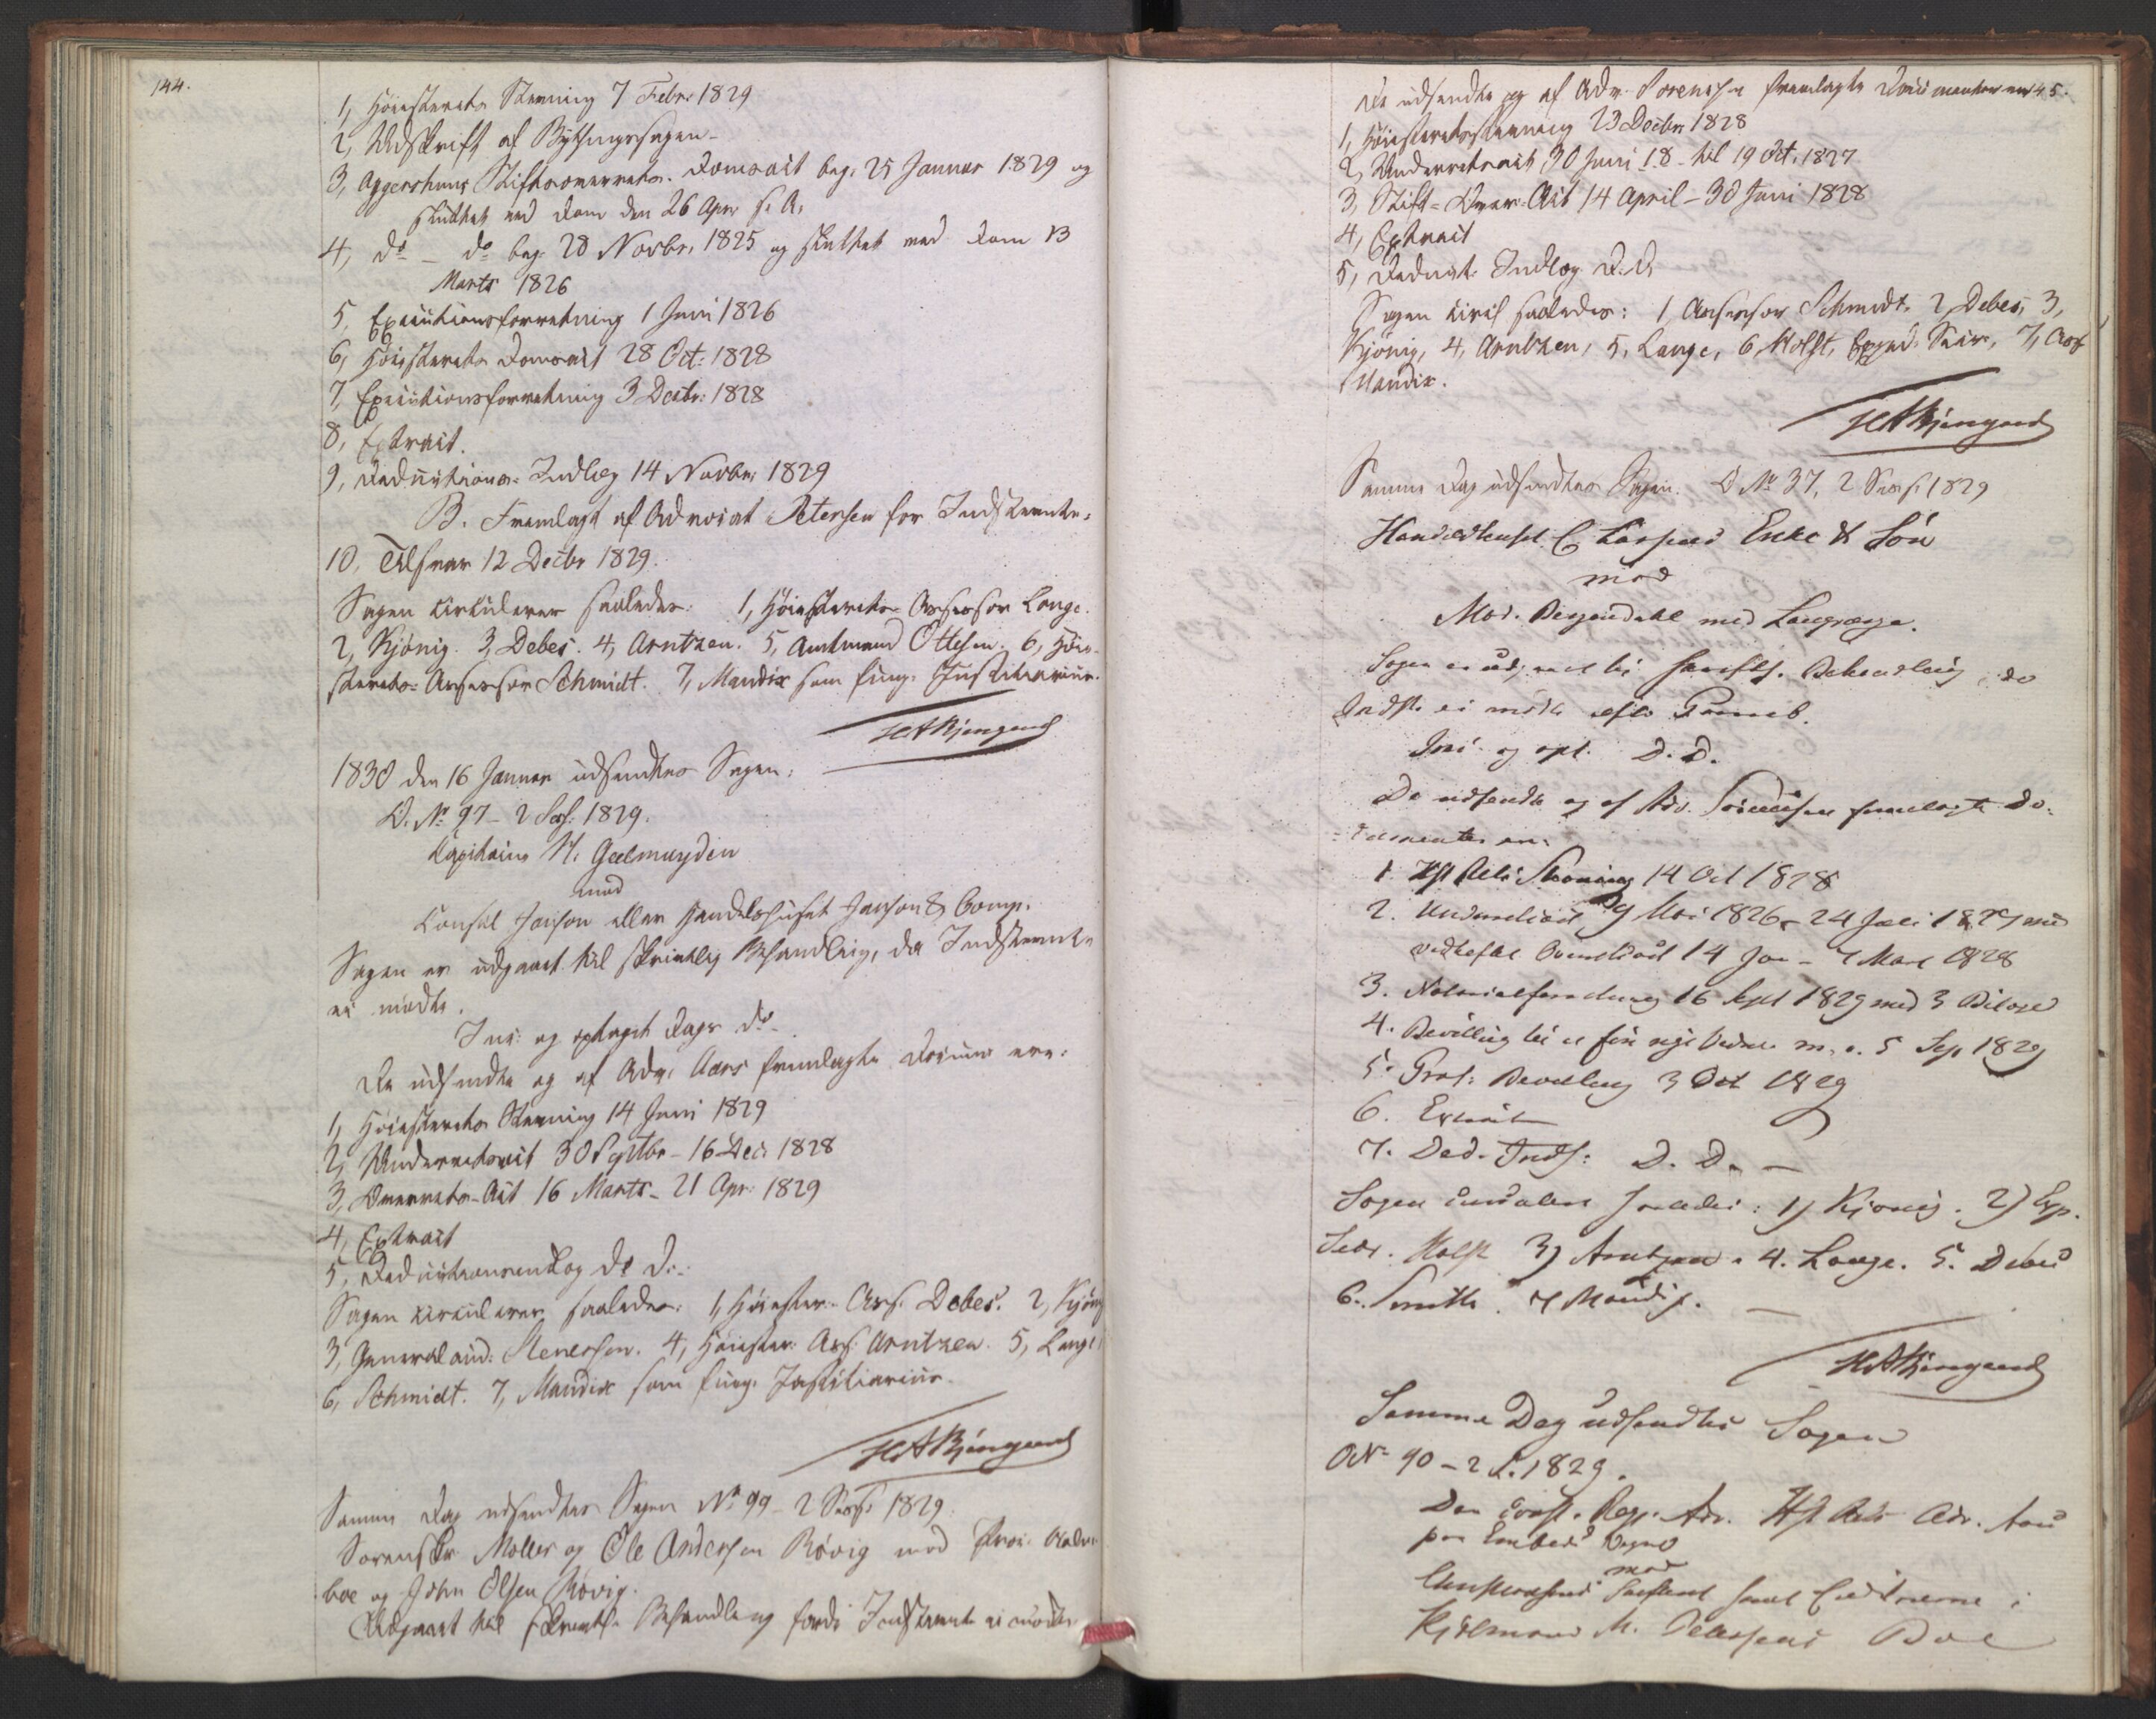 144.
1, Høiesterets Stevning 7 Febr. 1829
2, Udskrift af Bythingssagen
3, Aggershuus Stiftsoverrets. Domsact beg. 25 Januar 1829 og
sluttet ved Dom den 26 Apr. s. A.
4, do – do beg. 28 Novbr. 1825 og sluttet ved Dom 13
Marts 1826
5, Executionsforretning 1 Juni 1826
6, Høiesterets Domsact 28 Oct: 1828
7, Executionsforretning 3 Decbr: 1828
8, Extract.
9, Deductions-Indlæg 14 Novbr. 1829
B. Fremlagt af Advocat Petersen for Indstevnte.
10, Tilsvar 12 Decbr 1829.
Sagen circulerer saaledes: 1, Høiesterets-Assessor Lange.
2, Kjönig. 3, Debes. 4, Arntzen. 5, Amtmand Ottesen. 6, Høie-
sterets-Assessor Schmidt. 7, Mandix som fung. Justitiarius.
HABjerregaard
1830 den 16 Januar udsendtes Sagen:
O. No 97 – 2 Sess. 1829.
Capitaine H. Geelmuyden
mod
Consul Janson eller Handelshuset Janson & Comp.
Sagen er udgaaet til skriftlig Behandling, da Indstevnte
ei mødte.
Inc: og optaget Dags Do
De udsendte og af Adv. Aars fremlagte Docum: ere:
1, Høiesterets Stevning 14 Juni 1829
2, Underretsact 30 Septbr – 16 Dec. 1828
3, Overrets-Act 16 Marts – 21 Apr. 1829
4, Extract
5, Deductionsindlæg D. D.
Sagen circulerer saaledes: 1, Høiester. Ass. Debes. 2, Kjönig
3, Generalaud: Stenersen. 4, Høiester. Ass. Arntzen. 5, Lange
6, Schmidt. 7, Mandix som fung. Justitiarius.
HABjerregaard
Samme Dag udsendtes Sagen No 99 – 2 Sess. 1829
Sorenskr. Møller og Ole Andersen Røvig mod Proc.
boe og John Olsen Røvig.
Udgaaet til skriftl. Behandling fordi Indstevnte ei mødte
De udsendte og af Adv. Sorenssen fremlagte Documenter ere 45.
1, Høiesteretsstevning 23 Decbr 1828
2, Underretsact 30 Juni 18 – til 19 Oct. 1827
3, Stift-Over-Act 14 April – 30 Juni 1828
4, Extract
5, Deduct. Indlæg D. D.
Sagen circul saaledes: 1, Assessor Schmidt. 2, Debes, 3,
Kjönig, 4, Arntzen, 5, Lange, 6, Holst, Exped. Secr., 7, Ass
Mandix.
HABjerregaard
Samme Dag udsendtes Sagen. O No 37, 2 Sess. 1829
Handelshuset C Enke & Søn
mod
Mad. Beyendahl med Laugværge.
Sagen er udgaaet til skriftl. Behandling, da
Indst. ei mødte efter
Inc. og opt. D. D.
De udsendte og af Adv. Sørensen fremlagte Do-
cumenter ere:
1. HøiesteRets Stevning 14 Oct 1828
2. Underretsact 9 Mai 1826 – 24 Juli 1827 med
vedheftet Overretsact 14 Jan – 7 Mart 1828
3. Notarialforretning 16 Sept 1829 med 3 Bilage
4. Bevilling til at føre nye Vidner m. v. 5 Sep 1829
5. Grat: Bevilling 3 Oct 1829
6. Extract
7. Ded. Indl: D. D. –
Sagen circulerer saaledes: 1) Kjønig. 2) Exp.
Secr. Holst 3) Arntzen. 4. Lange. 5. Debes
6. Smith. 7 Mandix.
HABjerregaard
Samme Dag udsendtes Sagen
O No 90 – 2 S. 1829.
Den const. Reg. Adv. HøiesteRets Adv. Aars
paa Embeds Vegne
mod
samt Creditorerne i
Kjøbmand M. Petersens Boe